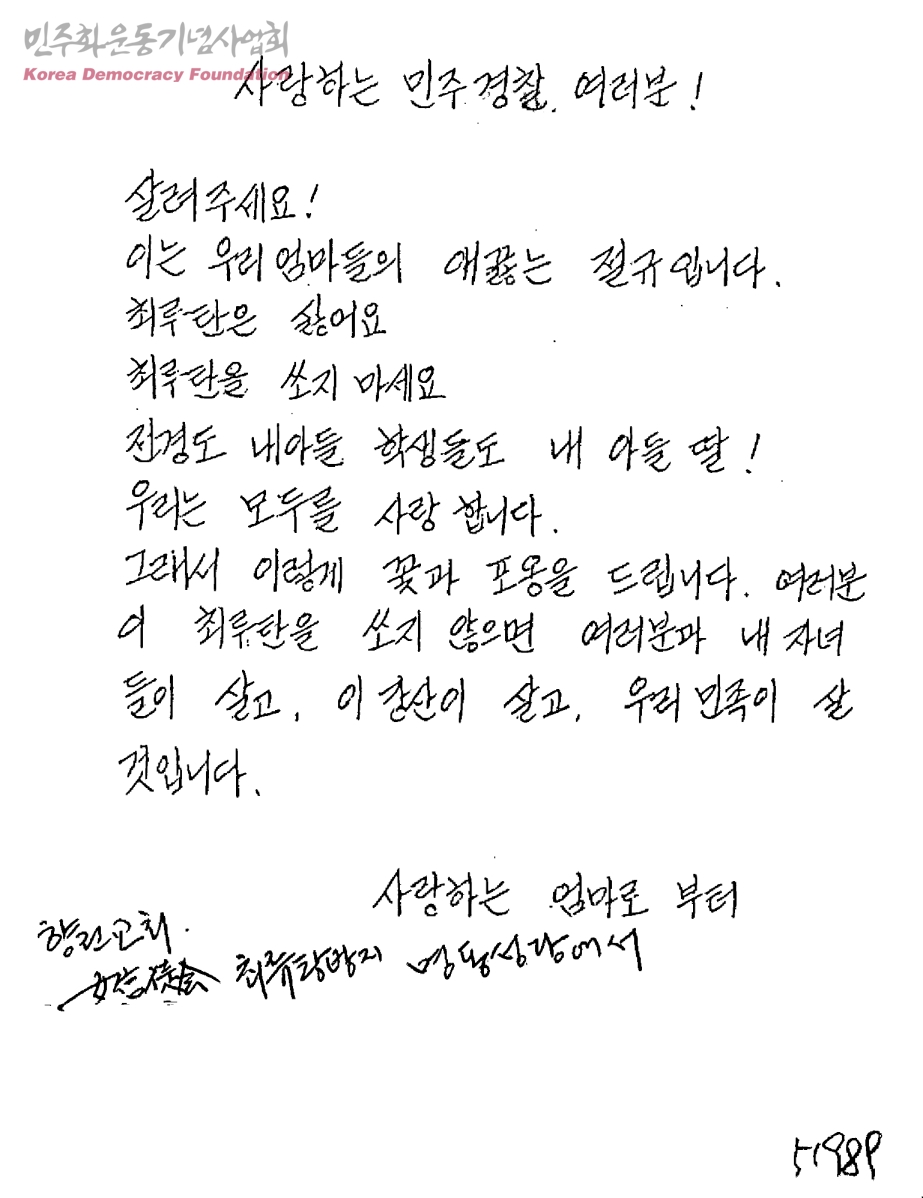 민주화운동기념사업회
Korea Democracy Foundation
사랑하는 민주경찰 여러분!
살려주세요!
이는 우리 엄마들의 애끓는 절규입니다.
최루탄은 싫어요
최루탄을 쏘지 마세요
전경도 내아들 학생들도 내 아들 딸!
우리는 모두를 사랑 합니다.
그래서 이렇게 꽃과 포옹을 드립니다. 여러분
이 최루탄을 쏘지 않으면 여러분과 내 자녀
들이 살고, 이 강산이 살고, 우리 민족이 살
것입니다.
사랑하는 엄마로 부터
향린교회.
최류탄방지 명동성당에서
51989